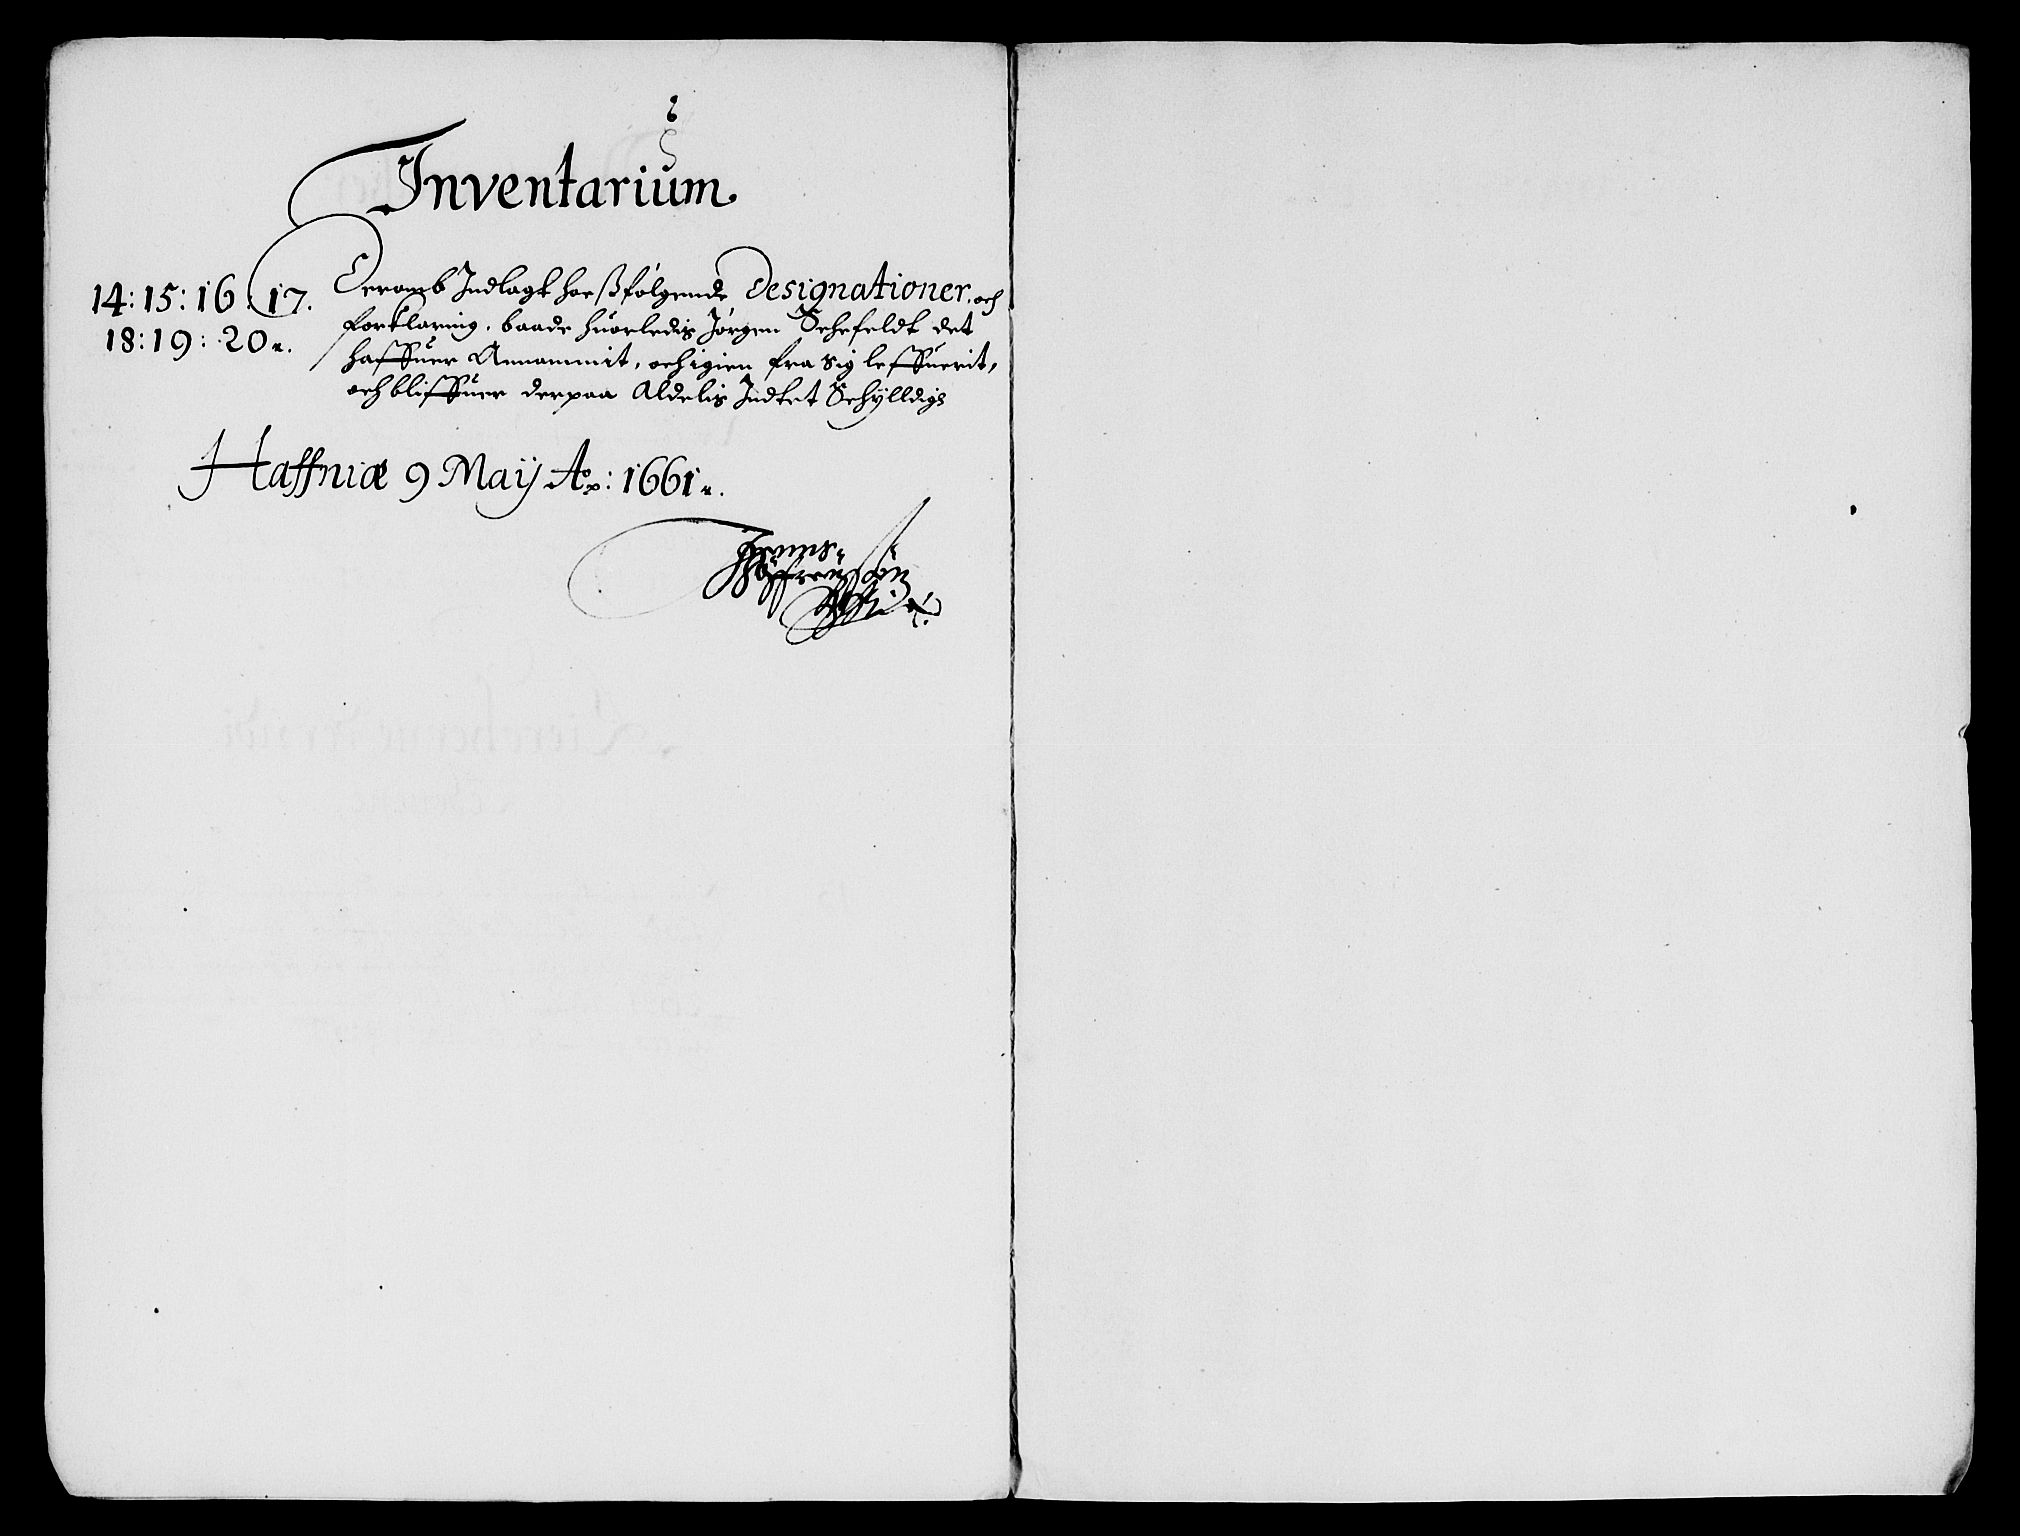 Inventarium.
14: 15: 16: 17.
18: 19: 20.
Deromb Indlagt hosßfølgende Designationer, och
forklaring, baade huorledis Jørgen Sehefeldt det
haffuer Annammit, och igien fra sig leffuerit,
och bliffuer derpaa Aldelis Indtet Schÿlldig
Haffniæ 9 Maÿ Ao: 1661.